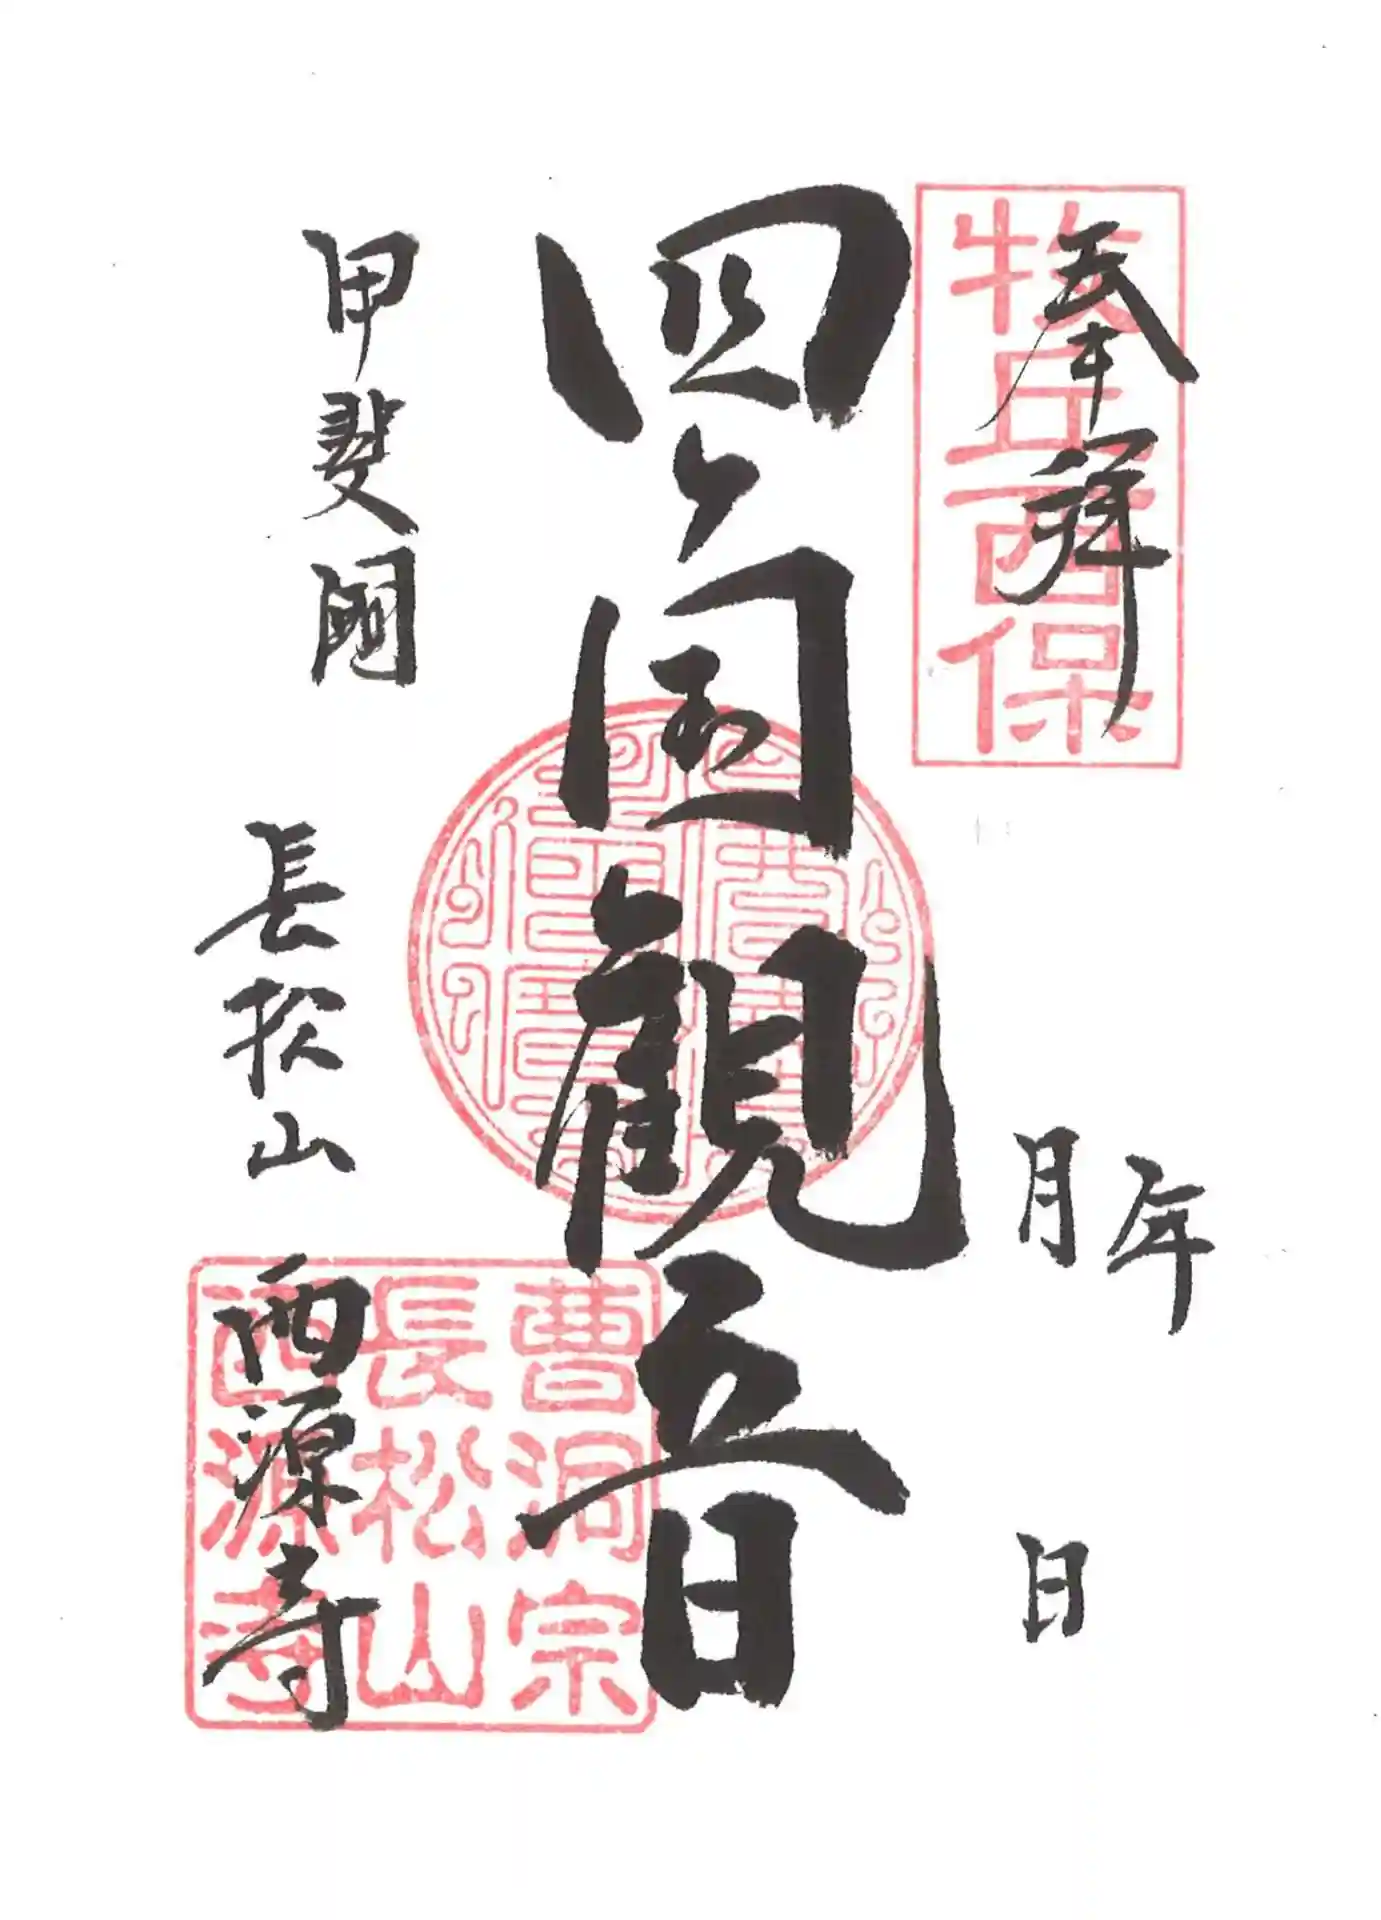 奉拝
牧丘西保
年
月
日
四ヶ国観音
甲斐國
長松山
西源寺
曹洞宗
長松山
西源寺